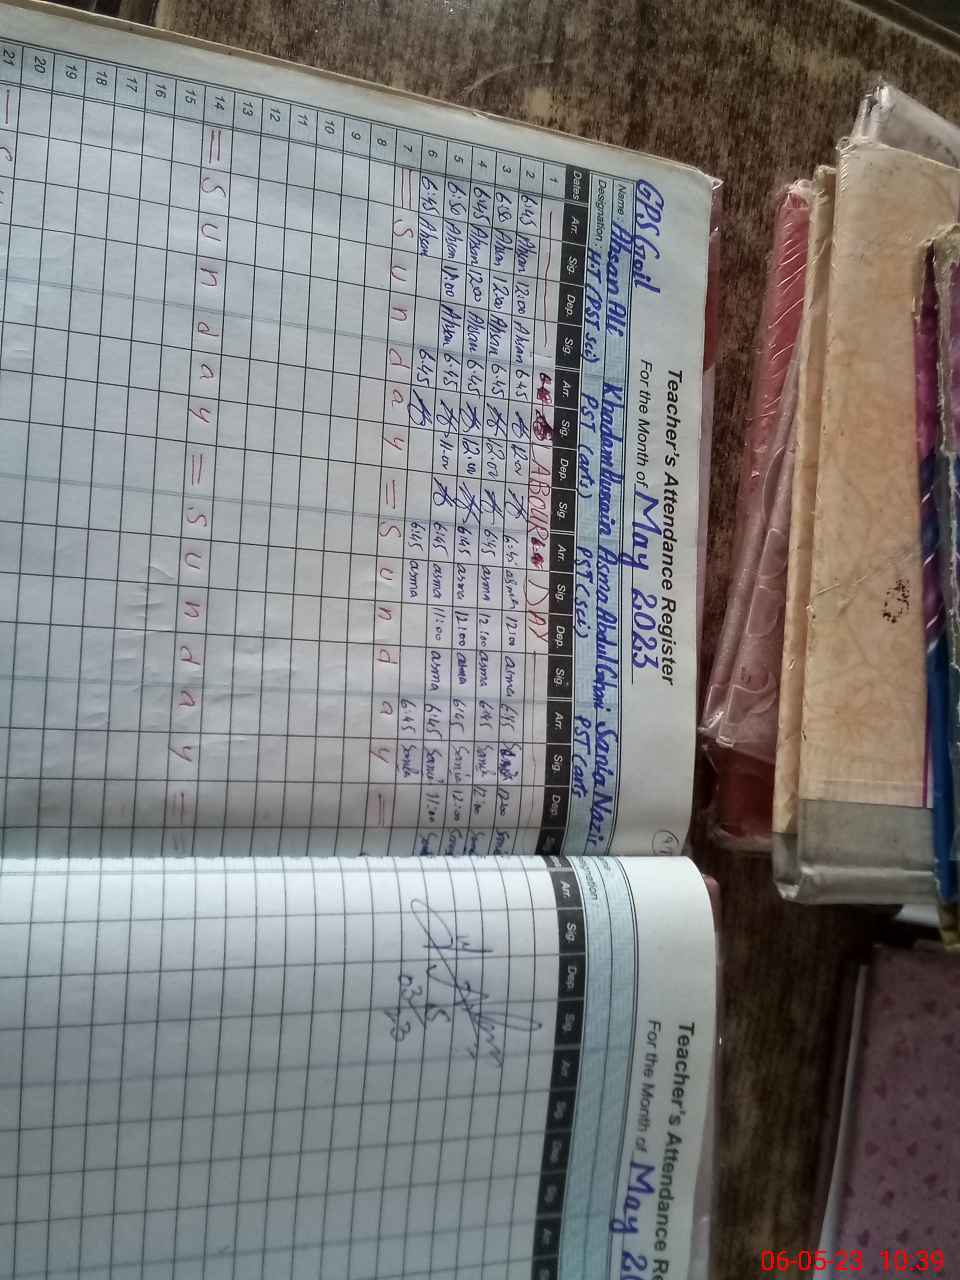 Teacher's Attendance Register
For the Month of May 2023
GPS Goil
Name : Ahsan Ali Khadam Hussain Asma Abdul Ghani Sania Nazir
Designation : H.T (PST Sci) PST (arts) PST (Sci) PST (arts
Dates Arr. Sig. Dep. Sig. Arr. Sig. Dep. Sig. Arr. Sig. Dep. Sig. Arr. Sig. Dep.
1 LABOUR DAY
2 6:45 Ahsan 12:00 Ahsan 6:45 12:00 6:45 asma 12:00 asma 6:45 Sania 12:00
3 6:50 Ahsan 12:00 Ahsan 6:45 12:00 6:45 asma 12:00 asma 6:45 Sania 12:00
4 6:45 Ahsan 12:00 Ahsan 6:45 12:00 6:45 asma 12:00 asma 6:45 Sania 12:00
5 6:50 Ahsan 11:00 Ahsan 6:45 11:00 6:45 asma 11:00 asma 6:45 Sania 11:00
6 6:45 Ahsan 6:45 6:45 asma 6:45 Sania
7 = Sunday = Sunday =
8
9
10
11
12
13
14 = Sunday = Sunday =
15
16
17
18
19
20
21
Teacher's Attendance Re
For the Month of May 20
signation
Arr. Sig. Dep. Sig. Arr. Sig. Dep. Sig. Arr.
06-05-23 10:39